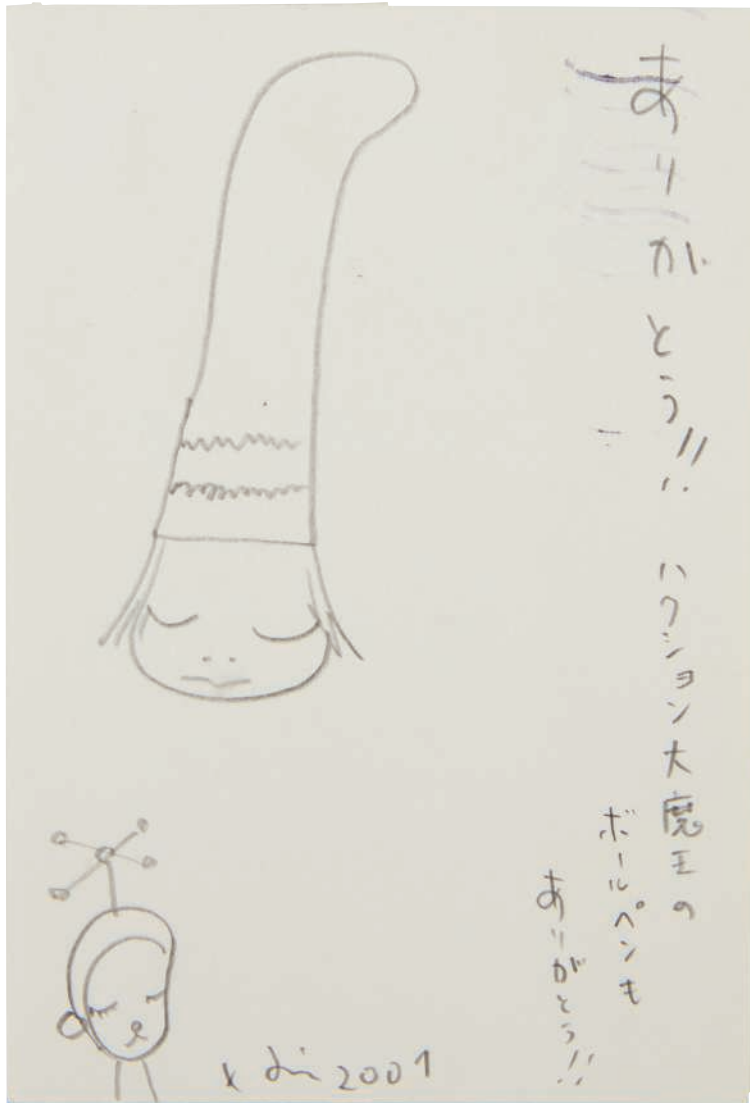 ありがとう!! ハクション大魔王の
ボールペンも
ありがとう!!
2001